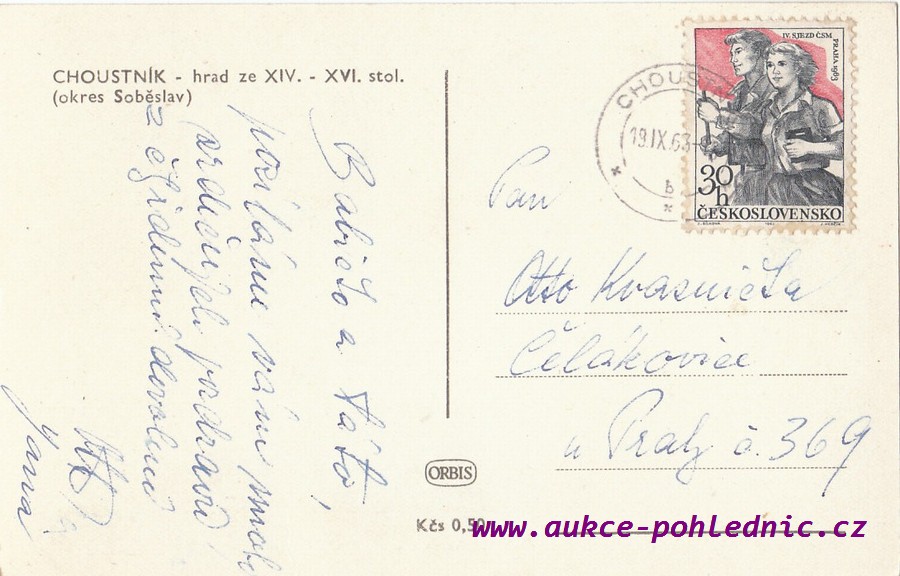 CHOUSTNÍK - hrad ze XIV. - XVI. stol.
(okres Soběslav)
Babičko a táto,
posílám vám mnoho
srdečných pozdravů
z dovolené
Jana
IV. SJEZD ČSM
PRAHA 1963
30h
ČESKOSLOVENSKO
CHOUST
19.IX.63
b
Pan
Otto Kvasnička
Čelákovice
u Prahy č. 369
ORBIS
Kčs 0,50
www.aukce-pohlednic.cz